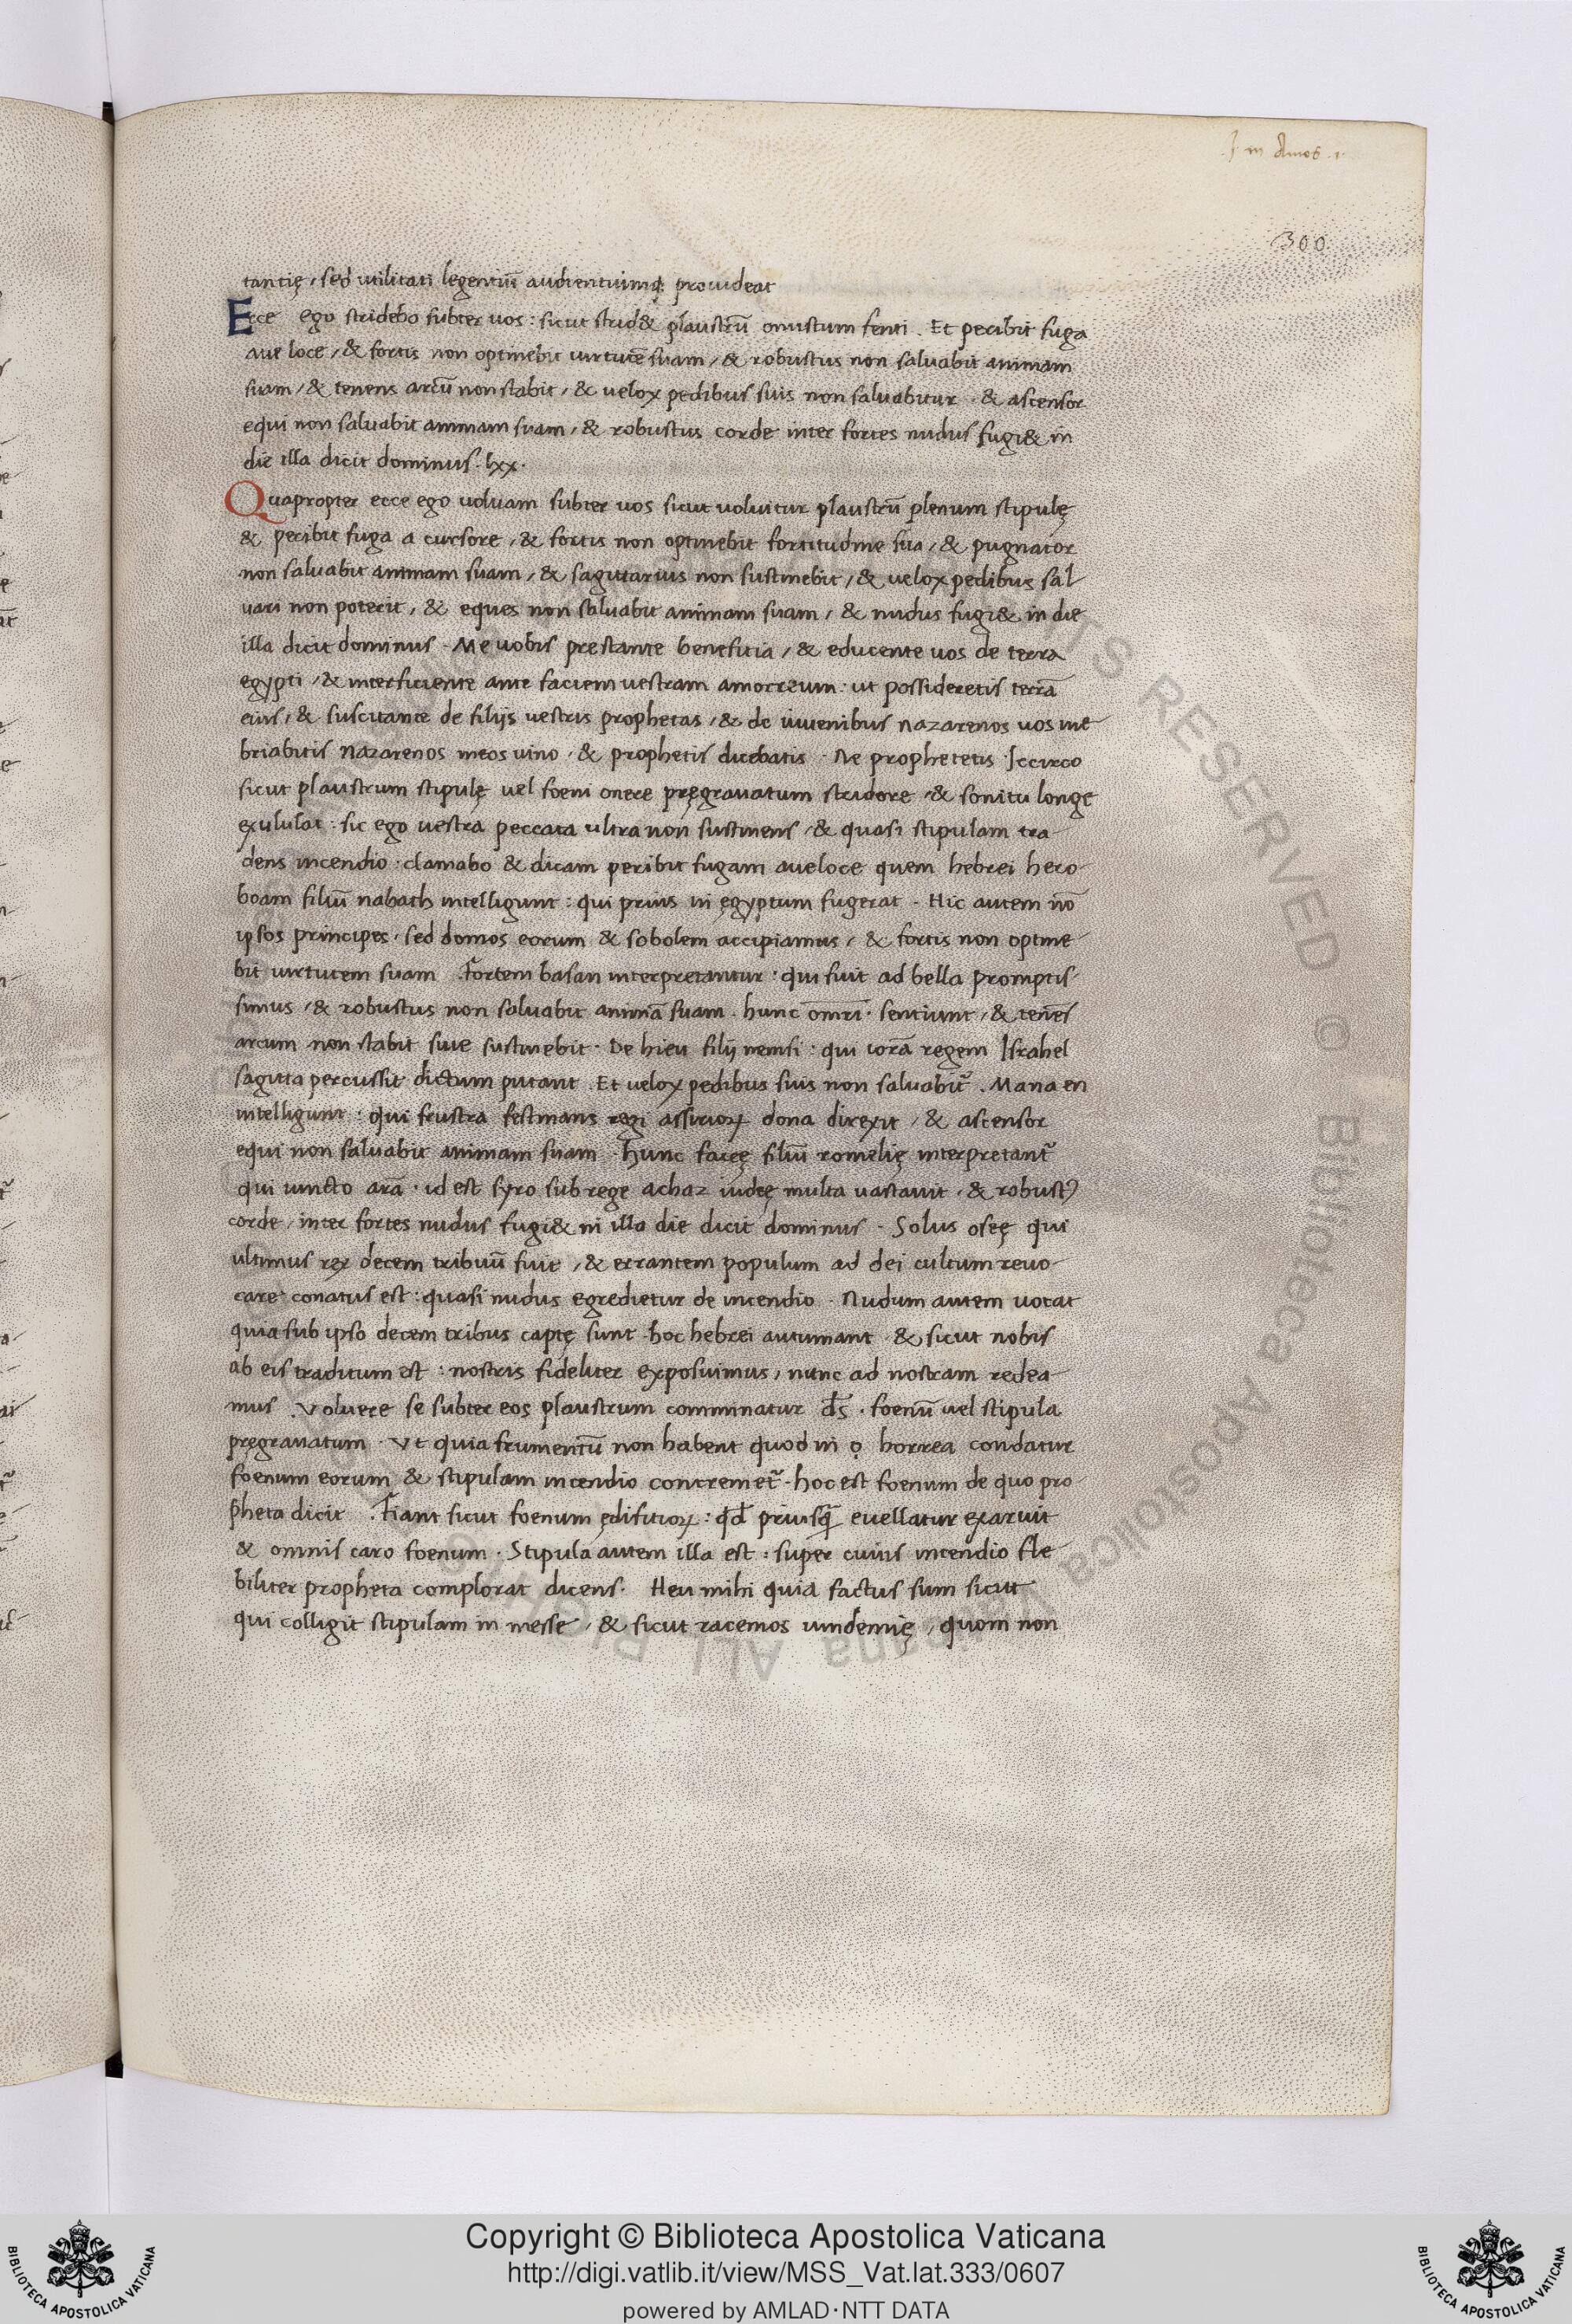 I in Amos 1
300
tantię, sed utilitati legentiū audientiumq; prouideat
Ecce ego stridebo subter uos: sicut strid& plaustrū onustum feni. Et peribit fuga
aue loce, & fortis non optinebit uirtutē suam, & robustus non saluabit animam
suam, & tenens arcū non stabit, & velox pedibus suis non saluabitur. & ascensor
equi non saluabit animam suam, & robustus corde inter fortes nudus fugi& in
die illa dicit dominus. lxx.
Quapropter ecce ego uoluam subter uos sicut uoluitur plaustrū plenum stipulę
& peribit fuga a cursore, & fortis non optinebit fortitudine sua, & pugnator
non saluabit animam suam, & sagittarius non sustinebit, & uelox pedibus sal
uari non poterit, & eques non saluabit animam suam, & nudus fugi& in die
illa dicit dominus. Me uobis prestante benefitia, & educente uos de terra
egypti, & interficiente ante faciem uestram amorreum: ut possideretis terrā
eius, & suscitante de filijs uestris prophetas, & de iuuenibus nazarenos uos ine
briabitis nazarenos meos uino, & prophetis dicebatis. Ne prophetetis. Iccirco
sicut plaustrum stipulę vel foeni onere pręgrauatum stridore, & sonitu longe
exululat: sic ego uestra peccata ultra non sustinens, & quasi stipulam tra-
dens incendio: clamabo & dicam peribit fugam aueloce quem hebrei hero-
boam filiū nabath intelligunt: qui prius in ęgyptum fugerat. Hic autem nō
ipsos principes, sed domos eorum & sobolem accipiamus, & fortis non optine-
bit uirtutem suam. Fortem basan interpretantur: qui fuit ad bella promptis-
simus, & robustus non saluabit animā suam. hunc omri. sentiunt, & tenēs
arcum non stabit siue sustinebit. De hieu filij nemsi: qui iorā regem Israhel
sagitta percussit dictum putant. Et velox pedibus suis non saluabit᷑. Mana en
intelligunt: qui frustra festinans regi assirioꝝ dona direxit, & ascensor
equi non saluabit animam suam. Hunc faceę filiū romelię interpretant᷑
qui iuncto arā. id est syro sub rege achaz iudeę multa uastauit, & robustꝰ
corde, inter fortes nudus fugi& in illa die dicit dominus. Solus oseę qui
ultimus rex decem tribuū fuit, & errantem populum ad dei cultum reuo-
care conatus est: quasi nudus egredietur de incendio. Nudum autem uocat
quia sub ipso decem tribus captę sunt. hoc hebrei autumant. & sicut nobis
ab eis traditum est: nostris fideliter exposuimus, nunc ad nostram redea-
mus. Voluere se subter eos plaustrum comminatur dꝰs. foenū uel stipula
pręgrauatum. Vt quia frumentū non habent quod in horrea condatur
foenum eorum & stipulam incendio concremet᷑. hoc est foenum de quo pro
pheta dicit. Fiant sicut foenum ędifitioꝝ: qd̄ priusq̄ euellatur exaruit
& omnis caro foenum. Stipula autem illa est: super cuius incendio fle-
biliter propheta complorat dicens. Heu mihi quia factus sum sicut
qui colligit stipulam in messe, & sicut racemos uindemię, quom non
Copyright © Biblioteca Apostolica Vaticana
http://digi.vatlib.it/view/MSS_Vat.lat.333/0607
powered by AMLAD·NTT DATA
BIBLIOTECA APOSTOLICA VATICANA
BIBLIOTECA APOSTOLICA VATICANA